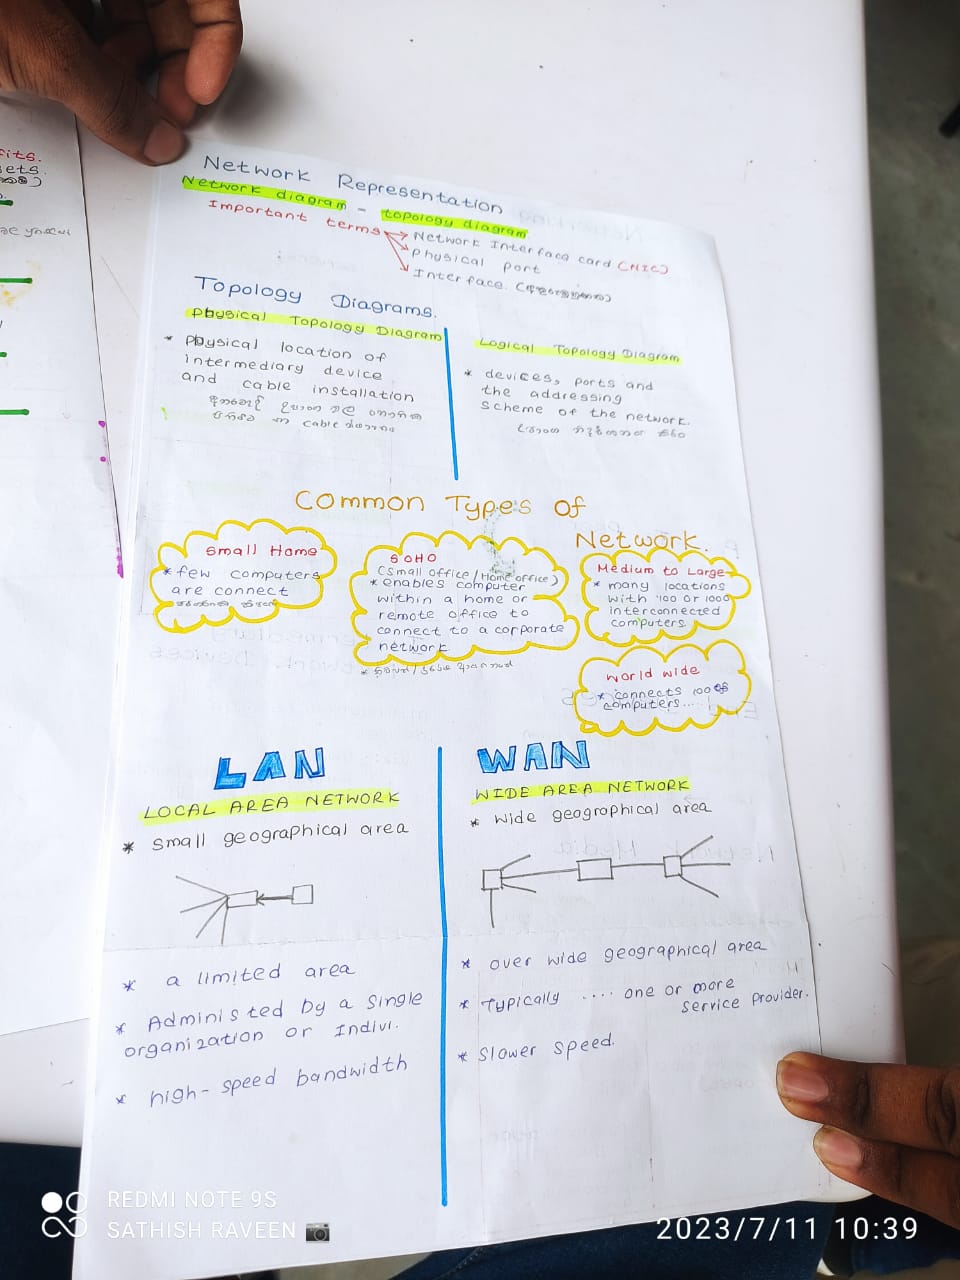 Network Representation
Network diagram - topology diagram
Important terms
Network Interface card (NIC)
physical port
Interface.
Topology Diagrams.
physical Topology Diagram
* physical location of
intermediary device
and cable installation
cable
Logical Topology Diagram
* devices, ports and
the addressing
scheme of the network.
Common Types of
Network.
Small Home
* few computers
are connect
SOHO
(Small office / Home office)
* enables computer
within a home or
remote office to
connect to a corporate
network
Medium to Large
* many locations
with 100 or 1000
interconnected
computers
world wide
* connects 100
computers....
LAN
LOCAL AREA NETWORK
* small geographical area
* a limited area
* Adminis ted by a single
organization or Indivi.
* high-speed bandwidth
WAN
WIDE AREA NETWORK
* wide geogrophical area
* over wide geographical area
* Typically .... one or more
service provider.
* Slower speed.
fits.
sets.
REDMI NOTE 9S
SATHISH RAVEEN
2023/7/11 10:39